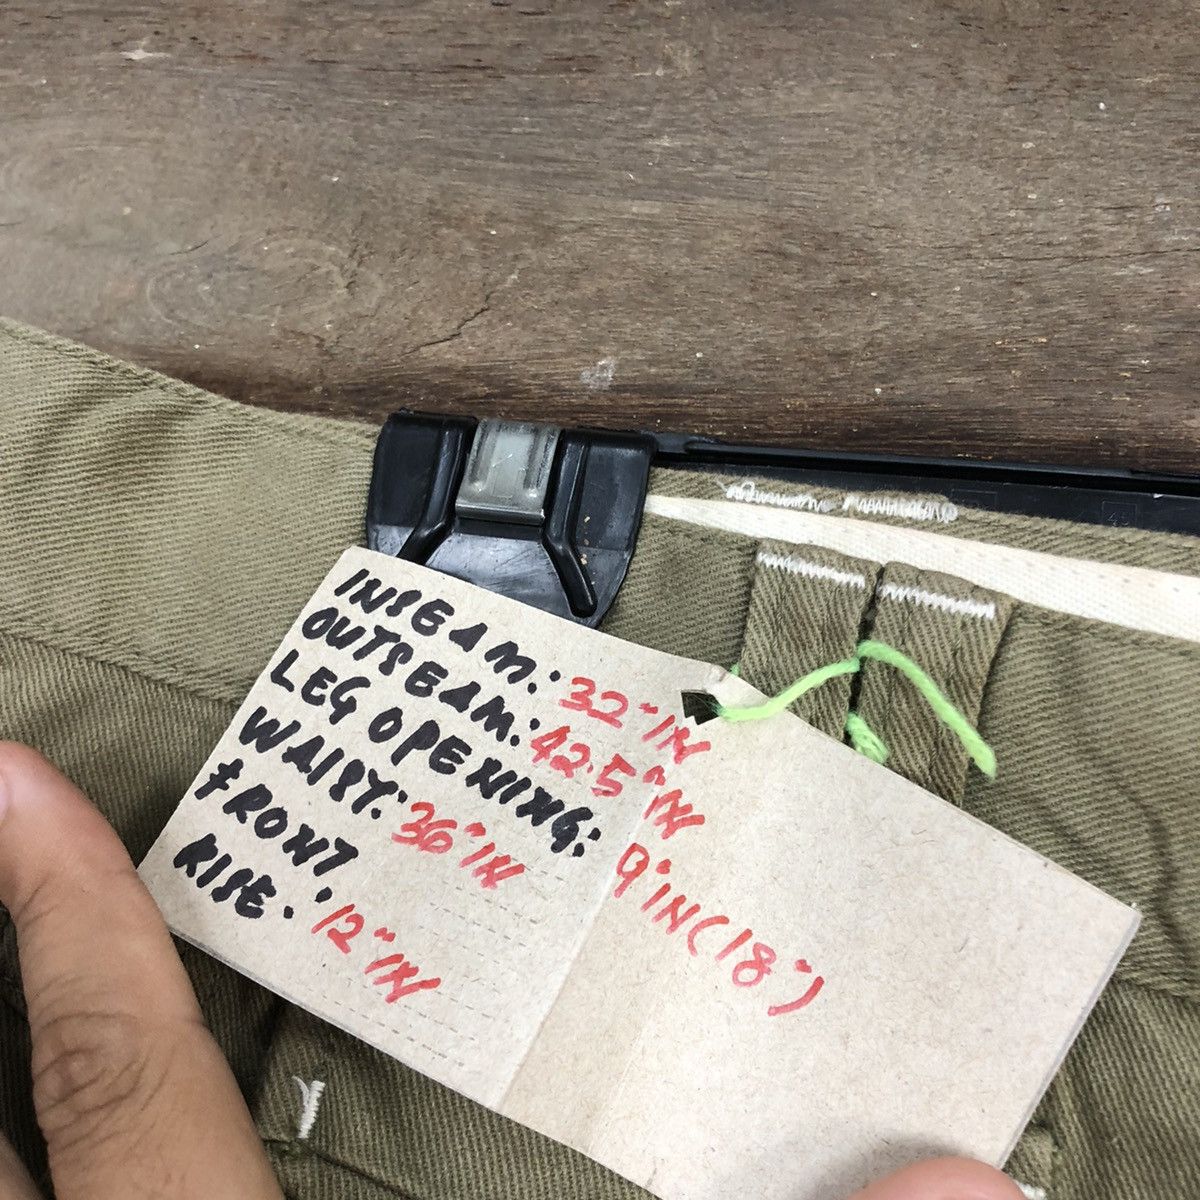 INSEAM: 32" IN
OUTSEAM: 42.5" IN
LEG OPENING: 9" IN (18")
WAIST: 36" IN
FRONT
RISE: 12" IN